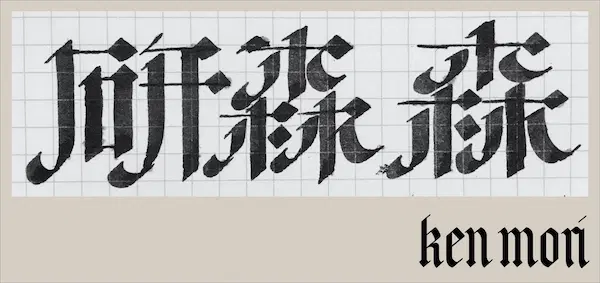 研森 森
ken mori